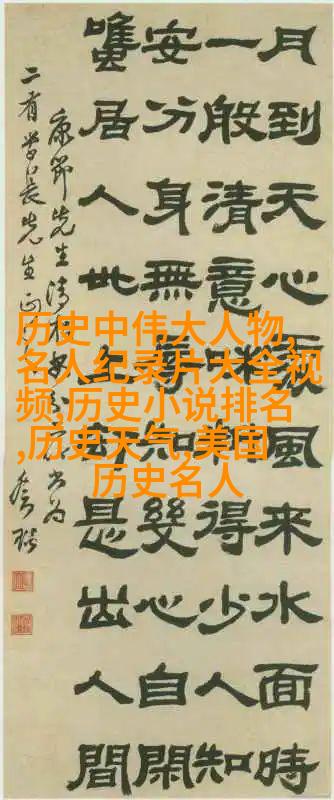 月到天心處風來水面時
一般清意味料得少人知
安分身無辱知幾心自閑
雖居人世上却是出人間
康節先生清
二有學長先生
历史中伟大人物,
名人纪录片大全视
频,历史小说排名
,历史天气,美国
历史名人